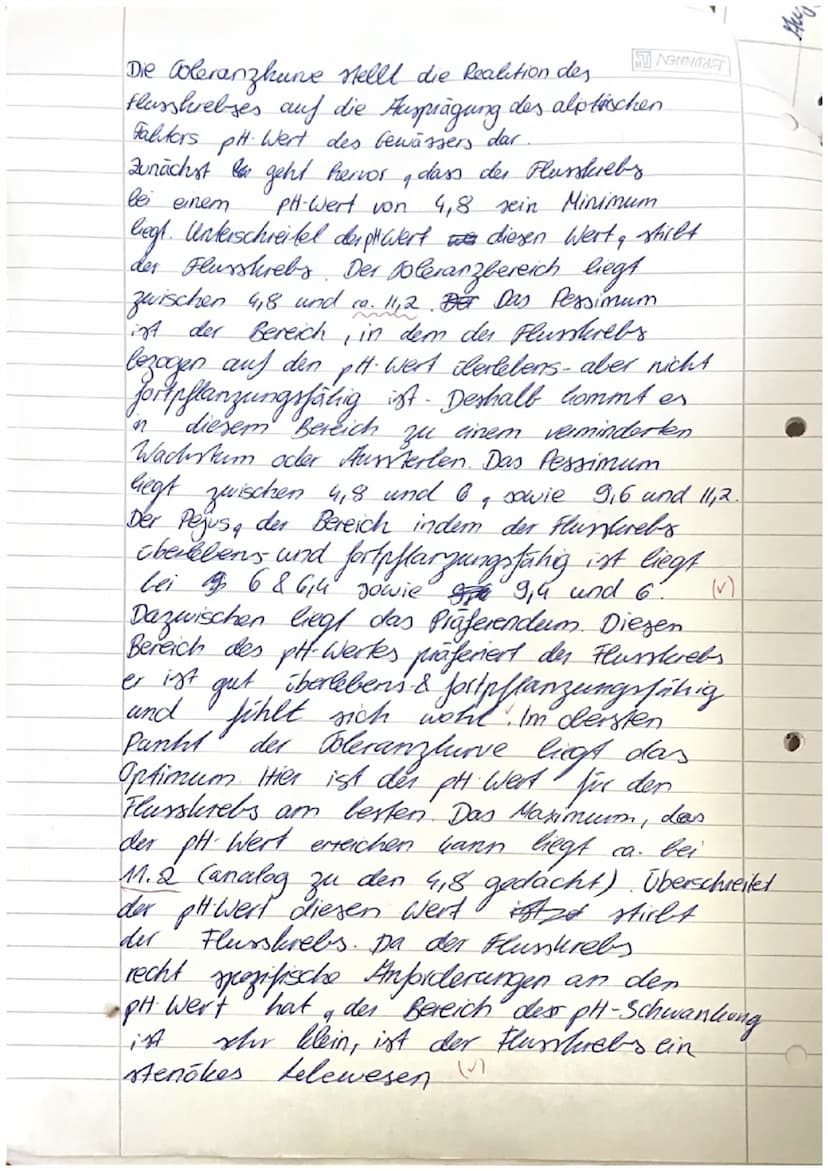 Die Toleranzkurve stellt die Reaktion des
Flusskrebses auf die Ausprägung des abiotischen
Faktors pH-Wert des Gewässers dar.
Zunächst geht hervor, dass der Flusskrebs
bei einem pH-Wert von 4,8 sein Minimum
liegt. Unterschreitet der pH Wert diesen Wert, stirbt
der Flusskrebs. Der Toleranzbereich liegt
zwischen 4,8 und ca. 11,2. Das Pessimum
ist der Bereich, in dem der Flusskrebs
bezogen auf den pH-Wert überlebens- aber nicht
fortpflanzungsfähig ist. Deshalb kommt es
in diesem Bereich zu einem verminderten
Wachstum oder Aussterben. Das Pessimum
liegt zwischen 4,8 und 6, sowie 9,6 und 11,2.
Der Pejus, der Bereich indem der Flusskrebs
überlebens- und fortpflanzungsfähig ist liegt
bei 6 & 6,4 sowie 9,4 und 6. (✓)
Dazwischen liegt das Präferendum. Diesen
Bereich des pH-Wertes präferiert der Flusskrebs
er ist gut überlebens & fortpflanzungsfähig
und fühlt sich wohl ✓. Im obersten
Punkt der Toleranzkurve liegt das
Optimum. Hier ist der pH Wert für den
Flusskrebs am besten. Das Maximum, das
der pH-Wert erreichen kann liegt ca. bei
11.2 (analog zu den 4,8 gedacht). Überschreitet
der pH Wert diesen Wert stirbt
der Flusskrebs. Da der Flusskrebs
recht spezifische Anforderungen an den
pH-Wert hat, der Bereich der pH-Schwankung
ist sehr klein, ist der Flusskrebs ein
stenökes Lebewesen (✓)